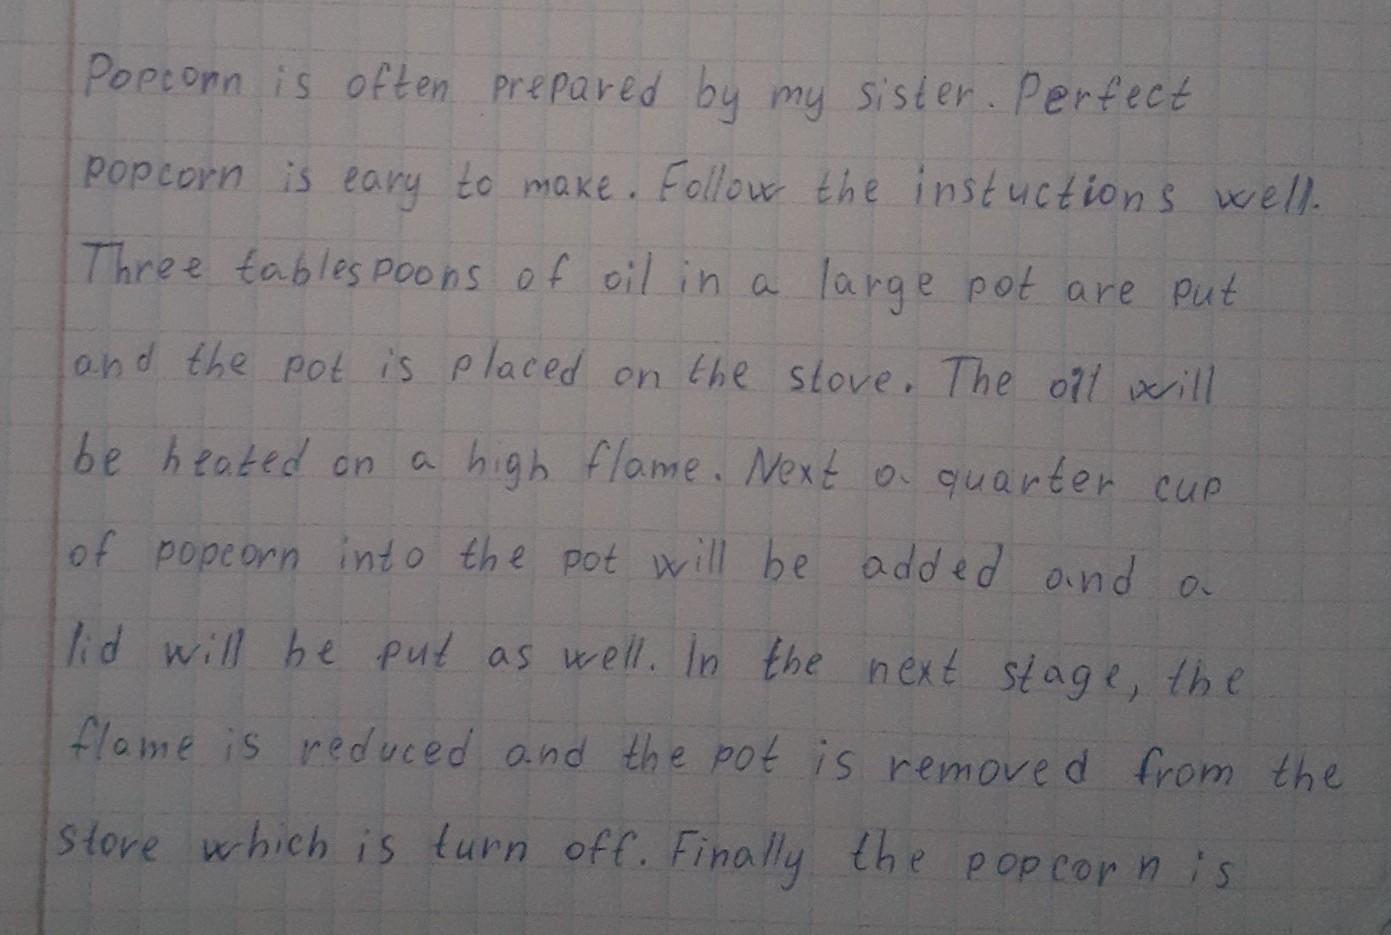 Popcorn is often prepared by my sister. Perfect
popcorn is eary to make. Follow the instuctions well.
Three tablespoons of oil in a large pot are put
and the pot is placed on the stove. The oil will
be heated on a high flame. Next a quarter cup
of popcorn into the pot will be added and a
lid will be put as well. In the next stage, the
flame is reduced and the pot is removed from the
stove which is turn off. Finally the popcorn is